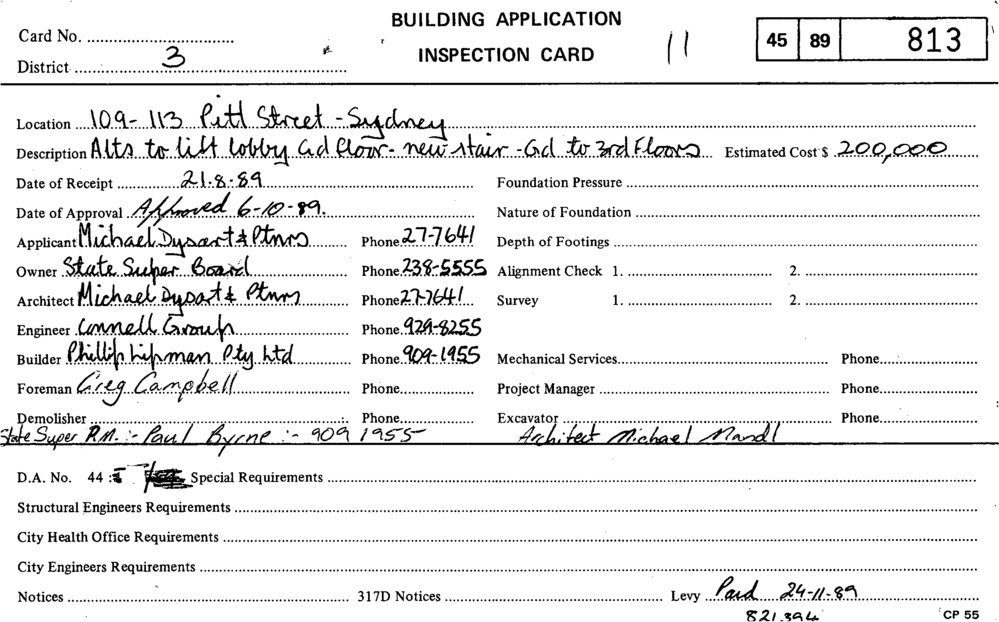 BUILDING APPLICATION
Card No. INSPECTION CARD 11 45 89 813
District 3
Location 109-113 Pitt Street - Sydney
Description Alts to lift lobby Gd floor - new stair - Gd to 3rd Floors Estimated Cost $ 200,000
Date of Receipt 21.8.89 Foundation Pressure
Date of Approval Approved 6-10-89. Nature of Foundation
Applicant Michael Dysart & Ptnrs Phone 27-7641 Depth of Footings
Owner State Super Board Phone 238-5555 Alignment Check 1. 2.
Architect Michael Dysart & Ptnrs Phone 27-7641 Survey 1. 2.
Engineer Connell Group Phone 929-8255
Builder Phillip Lipman Pty Ltd Phone 909-1955 Mechanical Services Phone
Foreman Greg Campbell Phone Project Manager Phone
Demolisher Phone Excavator Phone
State Super P.M. :- Paul Byrne :- 909 1955 Architect Michael Mandl
D.A. No. 44 : Special Requirements
Structural Engineers Requirements
City Health Office Requirements
City Engineers Requirements
Notices 317D Notices Levy Paid 24-11-89
821.394 CP 55